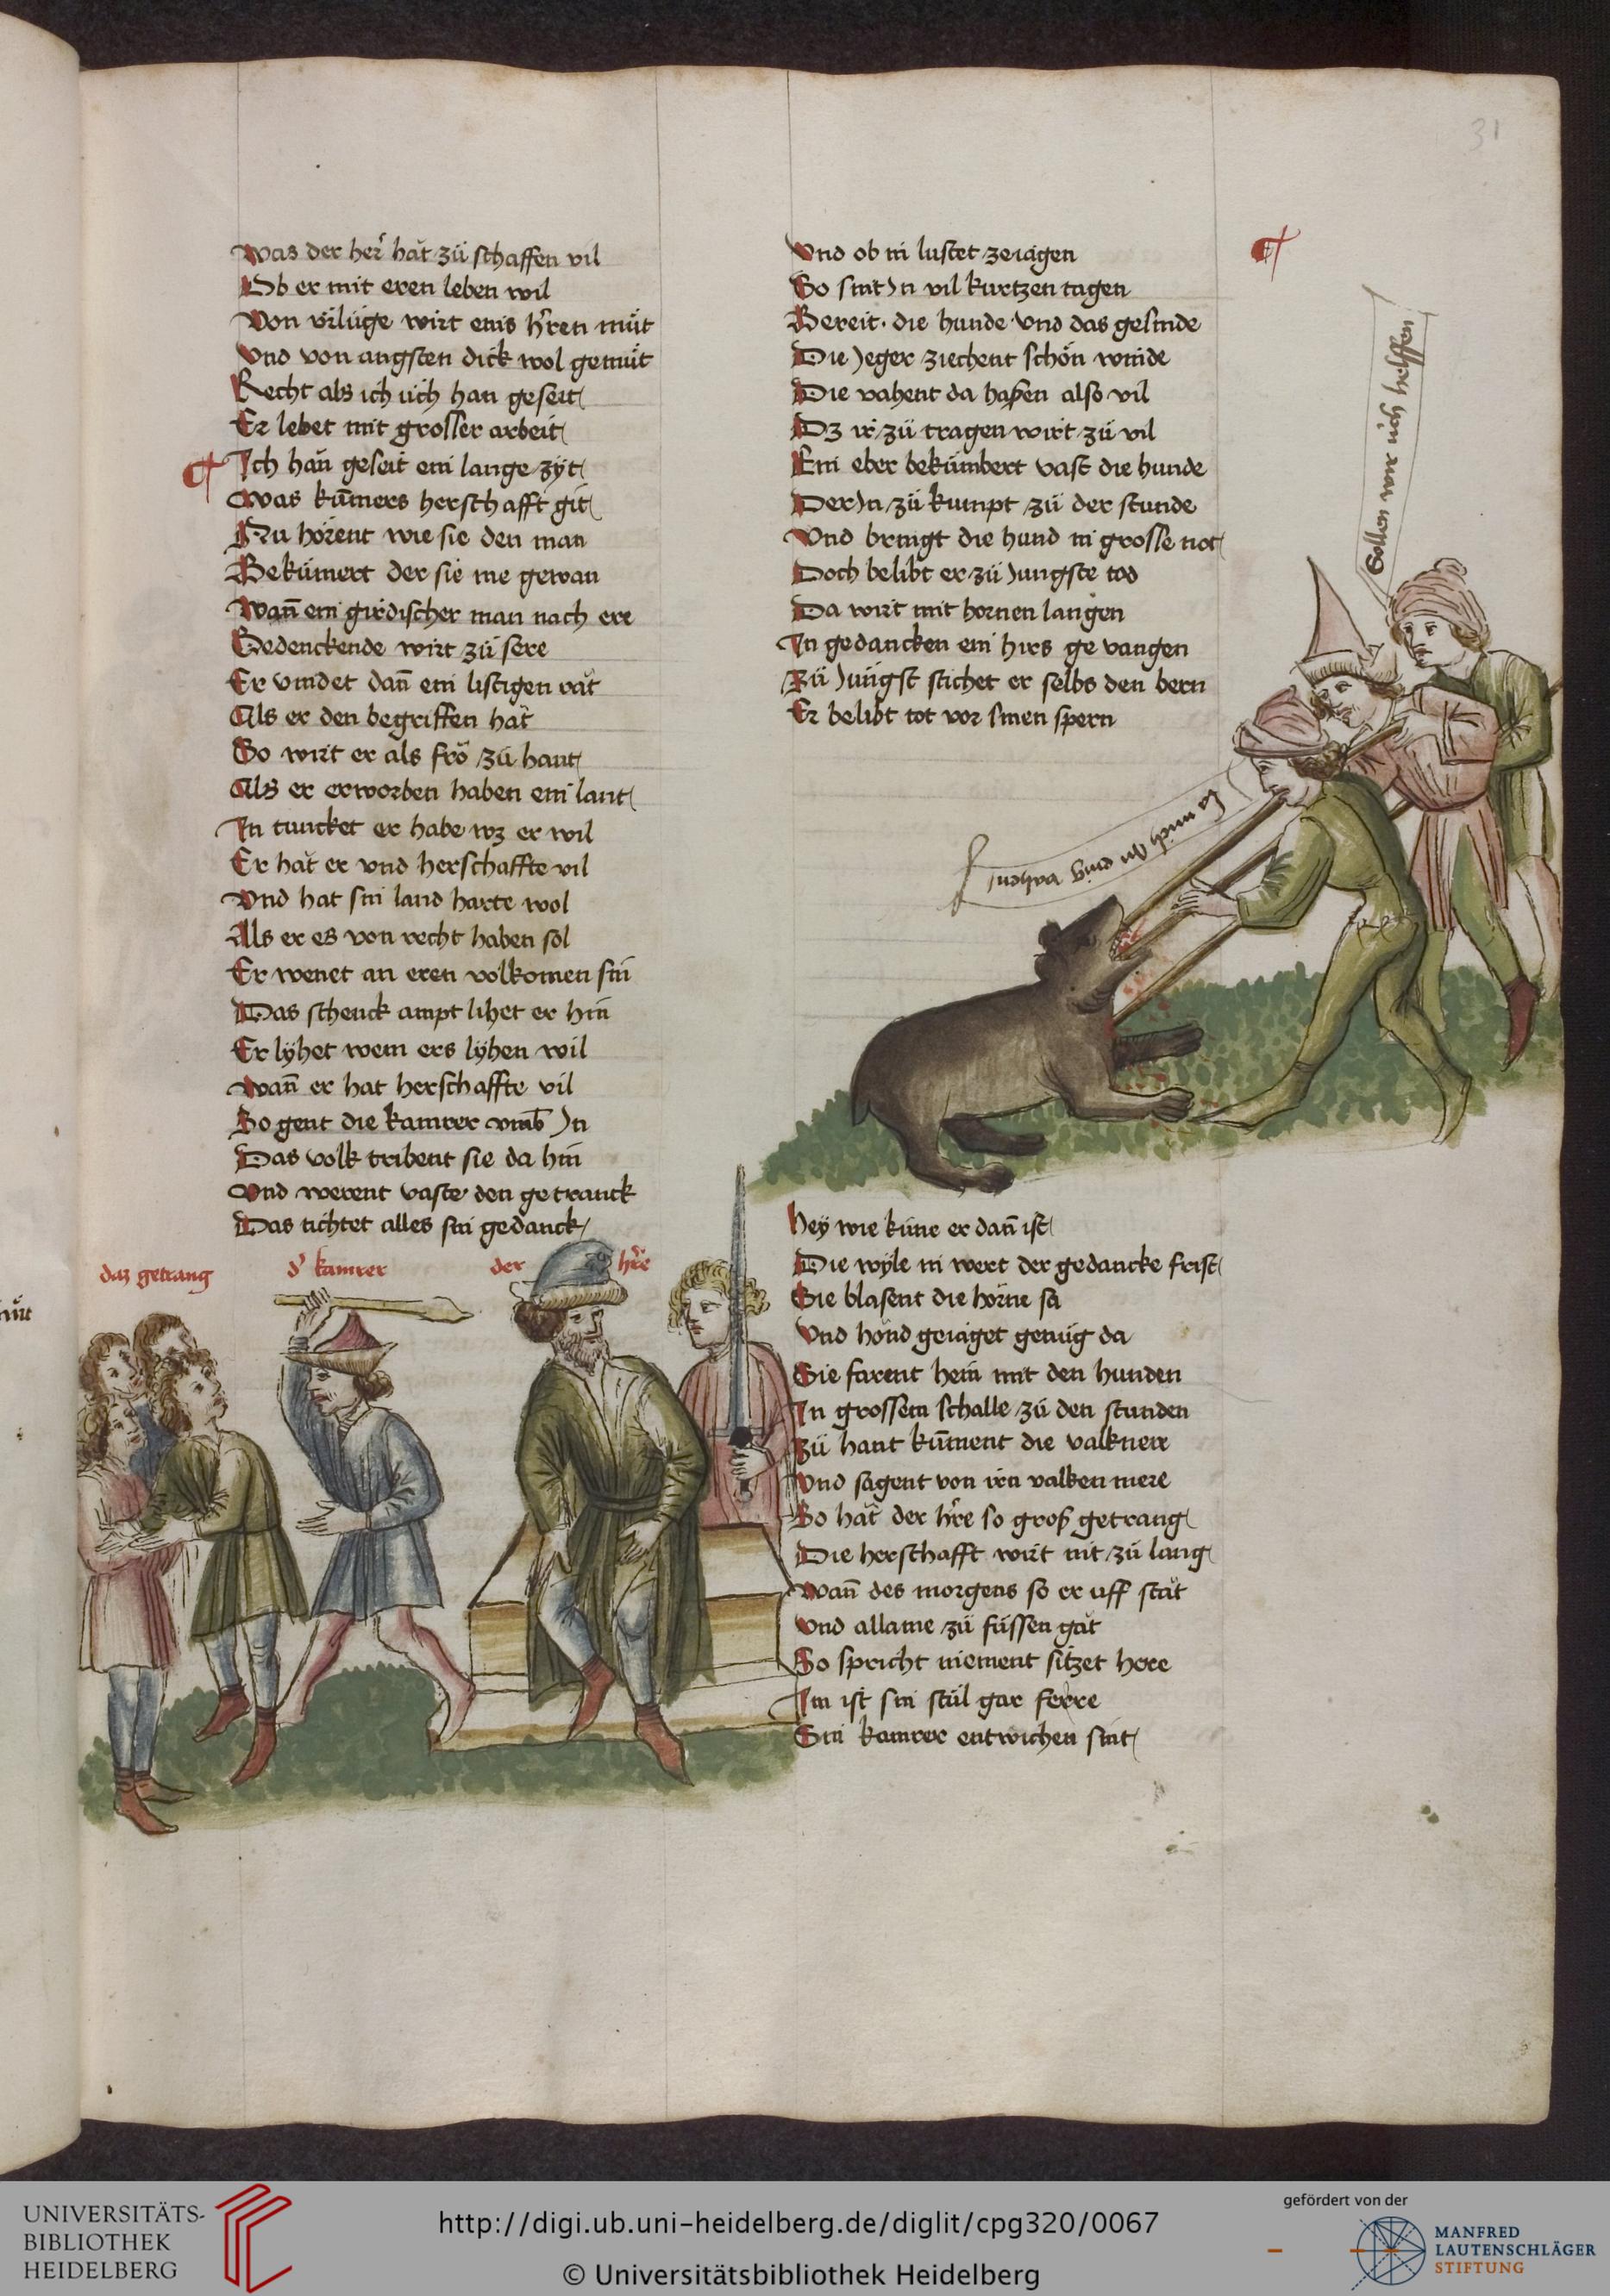 31
Was der her̃ hat zü schaffen vil
Ob er mit eren leben wil
Von vrlüge wirt eins h̃ren müt
Vnd von angsten dick wol gemüt
Recht als ich üch han geseit
Er lebet mit grosser arbeit
Ich han geseit ein lange zÿt
Was kum̃ers herschafft git
Nu hörent wie sie den man
Bekümert der sie nie gewan
Wann̄ ein girdischer man nach ere
Gedenckende wirt zü sere
Er vindet dann̄ ein listigen rat
Als er den begriffen hat
So wirt er als fro zü hant
Als er erworben haben ein lant
In tuncket er habe wz er wil
Er hat er vnd herschaffte vil
Vnd hat sin land harte wol
Als er es von recht haben sol
Er wenet an eren volkomen sin
Das schenck ampt lihet er hin
Er lÿhet wem ers lÿhen wil
Wann̄ er hat herschaffte vil
So gent die kamrer vmb̄ In
Das volk tribent sie da hin
Vnd werent vaste den getranck
Das tichtet alles sin gedanck
daz getrang
d' kamrer
der h̃re
Vnd ob in lustet ze iagen
So sint In vil kurtzen tagen
Bereit· die hunde vnd das gesinde
Die Jeger ziechent schön winde
Die vahent da hasen also vil
Dz ir zü tragen wirt zü vil
Ein eber bekümbert vast die hunde
Der In zü kumpt zü der stunde
Vnd bringt die hund in grosse not
Doch belibt er zü Jungste tod
Da wirt mit hornen langen
In gedancken ein hirs ge vangen
Zü Jüngst stichet er selbs den bern
Er belibt tot vor sinen spern
Sollen wir üch helffen
La mich In eing vahent
Heÿ wie küne er dann̄ ist
Die wÿle in wert der gedancke frist
Sie blasent die hörne sa
Vnd hond geiaget genüg da
Sie farent hein mit den hunden
In grossem schalle zü den stunden
Zü hant kum̃ent die valkner
Vnd sagent von irn valken mere
So hat der h̃re so groß getrang
Die herschafft wirt nit zü lang
Wann̄ des morgens so er uff stat
Vnd allaine zü füssen gat
So spricht niement sitzet here
Im ist sin stül gar ferre
Sin kamrer entwichen sint
UNIVERSITÄTS-
BIBLIOTHEK
HEIDELBERG
http://digi.ub.uni-heidelberg.de/diglit/cpg320/0067
© Universitätsbibliothek Heidelberg
gefördert von der
MANFRED
LAUTENSCHLÄGER
STIFTUNG